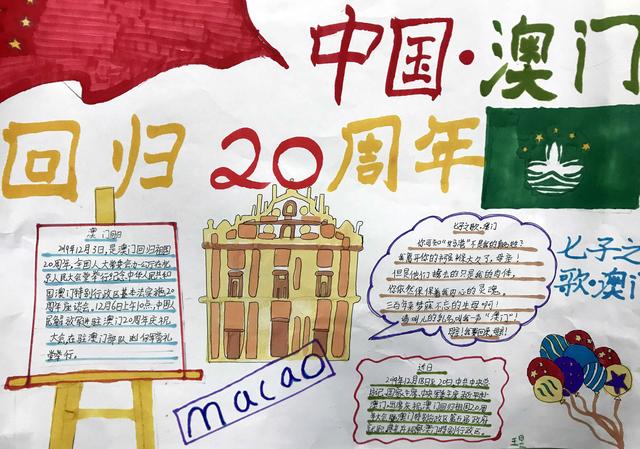 中国·澳门
回归20周年
澳门回归
2019年12月3日,是澳门回归祖国
20周年,全国人大常委会办公厅在北
京人民大会堂举行纪念中华人民共和
国澳门特别行政区基本法实施20
周年座谈会,12月6日上午10点,中国人
民解放军进驻澳门20周年庆祝
大会,在驻澳门部队
堂举行。
七子之歌·澳门
你可知"妈港"不是我的真姓?
我离开你的襁褓太久了,母亲!
但是他们掳去的只是我的肉体,
你依然保管着我内心的灵魂。
三百年来梦寐不忘的生母啊!
请叫儿的乳名叫我一声"澳门"!
母亲!我要回来,母亲!
七子之
歌·澳门
macao
近日
2019年12月18日至20日,中共中央总
书记、国家主席、中央军委主席
澳门,出席庆祝澳门回归祖国20周
年大会暨澳门特别行政区第五届政府